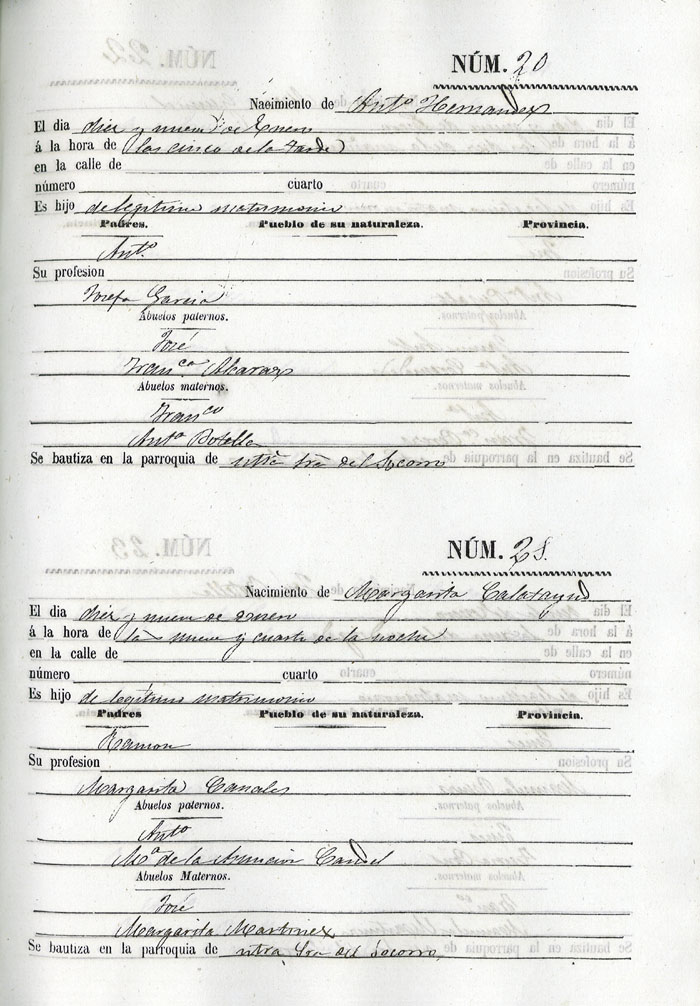 NÚM. 20
Nacimiento de Antº Hernandez
El dia diez y nueve de Enero
á la hora de las cinco de la tarde
en la calle de
número cuarto
Es hijo de legitimo matrimonio
Padres. Pueblo de su naturaleza. Provincia.
Antº
Su profesion
Josefa Garcia
Abuelos paternos.
José
Franca Alcaraz
Abuelos maternos.
Franco
Anta Botella
Se bautiza en la parroquia de ntra Sra del Socorro
NÚM. 21.
Nacimiento de Margarita Calatayud
El dia diez y nueve de Enero
á la hora de la nueve y cuarto de la noche
en la calle de
número cuarto
Es hijo de legítimo matrimonio
Padres Pueblo de su naturaleza. Provincia.
Ramon
Su profesion
Margarita Canales
Abuelos paternos.
Antº
Mª de la Asuncion Candel
Abuelos Maternos.
José
Margarita Martinez
Se bautiza en la parroquia de ntra Sra del Socorro